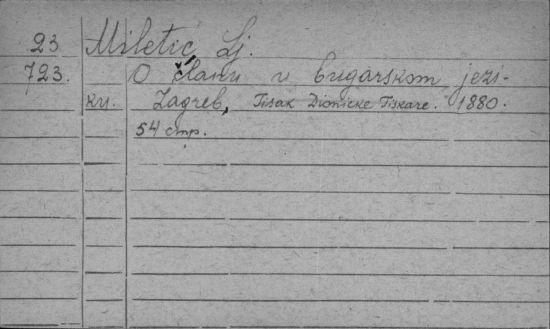 23 Miletić, Lj.
723. O članu u bugarskom jezi-
ku. Zagreb, Tisak Dioničke Tiskare. 1880.
54 стр.